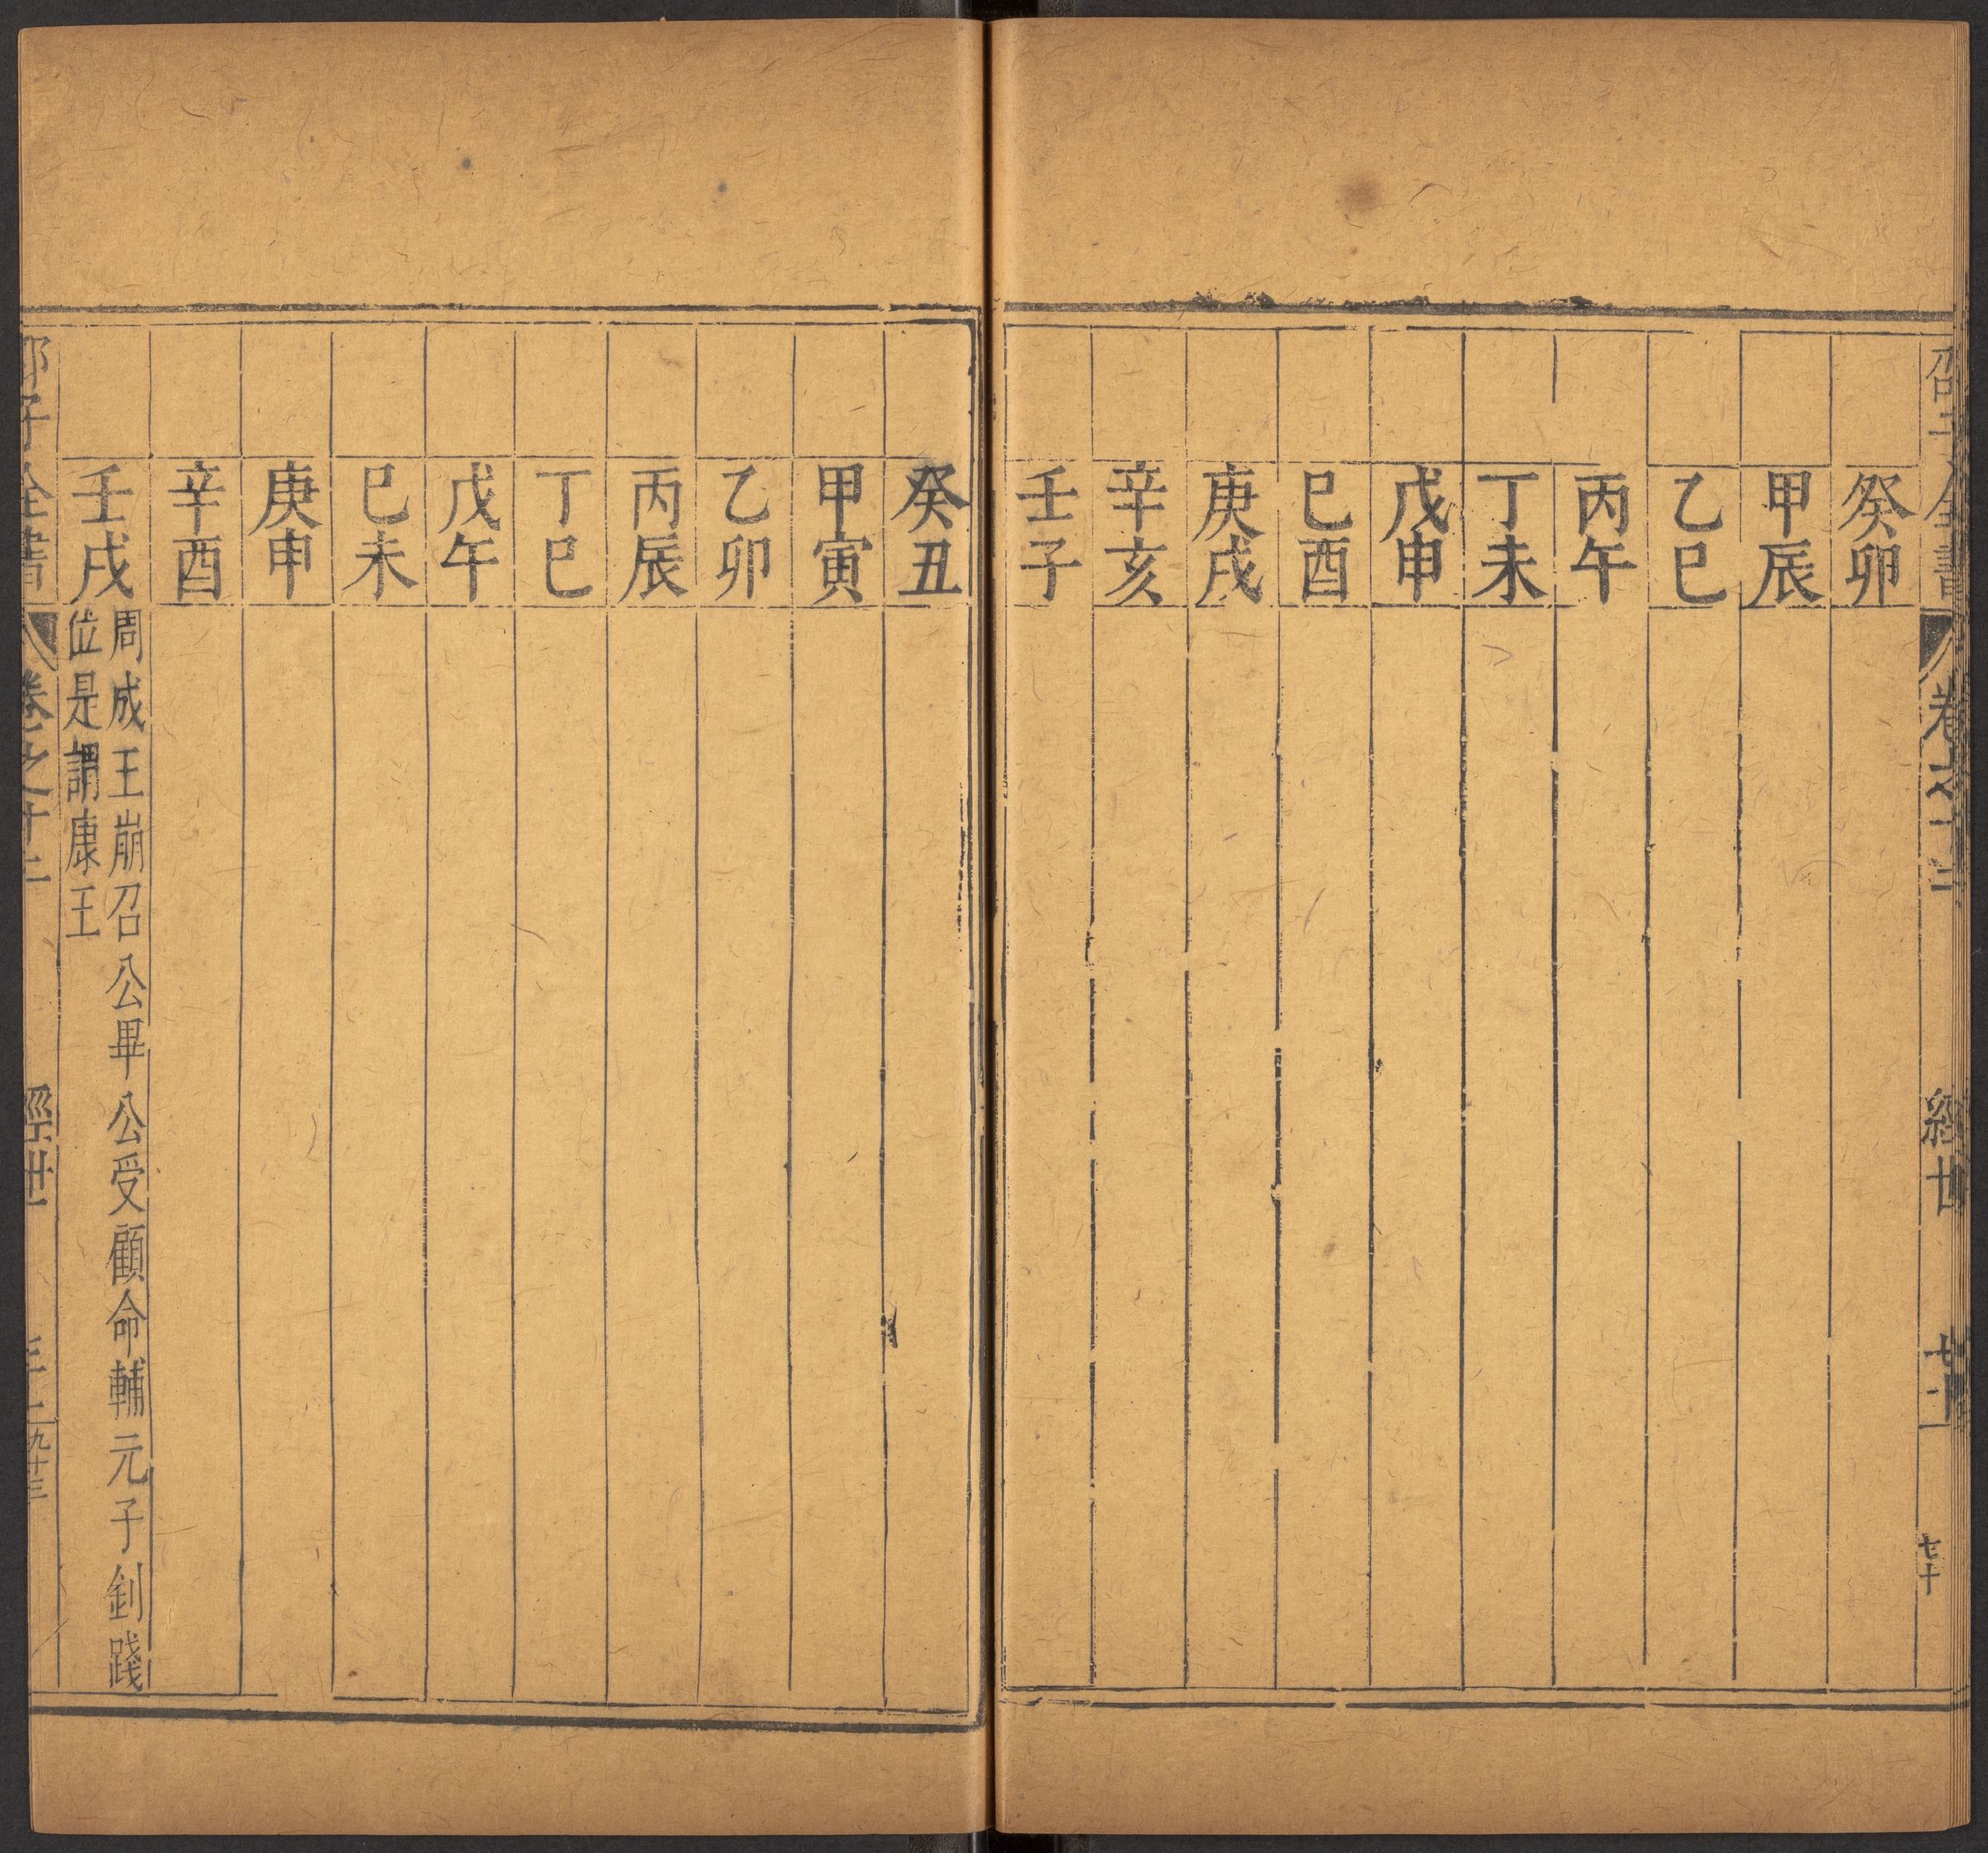 全書 卷之十二 經世
癸卯
甲辰
乙巳
丙午
丁未
戊申
巳酉
庚戌
辛亥
壬子
癸丑
甲寅
乙卯
丙辰
丁巳
戊午
巳未
庚申
辛酉
壬戌
周成王崩召公畢公受顧命輔元子釗踐
位是謂康王
子全書 卷之十二 經世 九十三